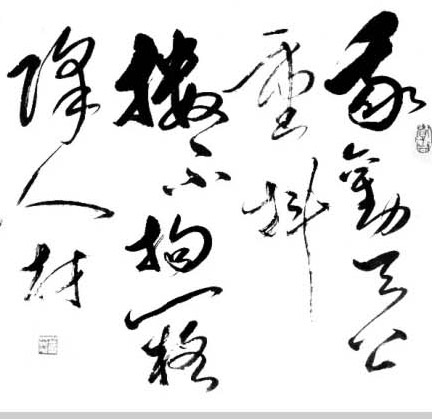 我劝天公
重抖
擞不拘一格
降人材